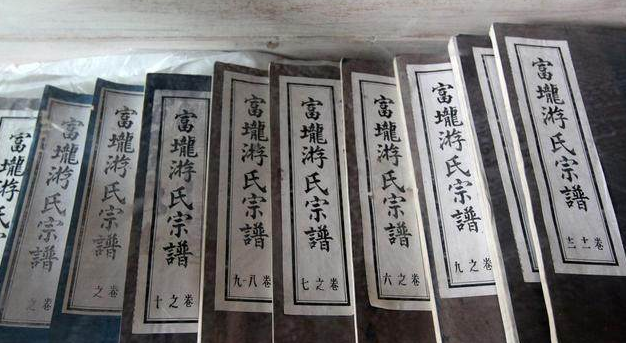 富壠游氏宗譜
卷
富壠游氏宗譜
卷之九
富壠游氏宗譜
卷之六
富壠游氏宗譜
卷之七
富壠游氏宗譜
卷八·九
富壠游氏宗譜
卷之十
富壠游氏宗譜
卷之
富壠游氏宗譜
卷之
富壠游